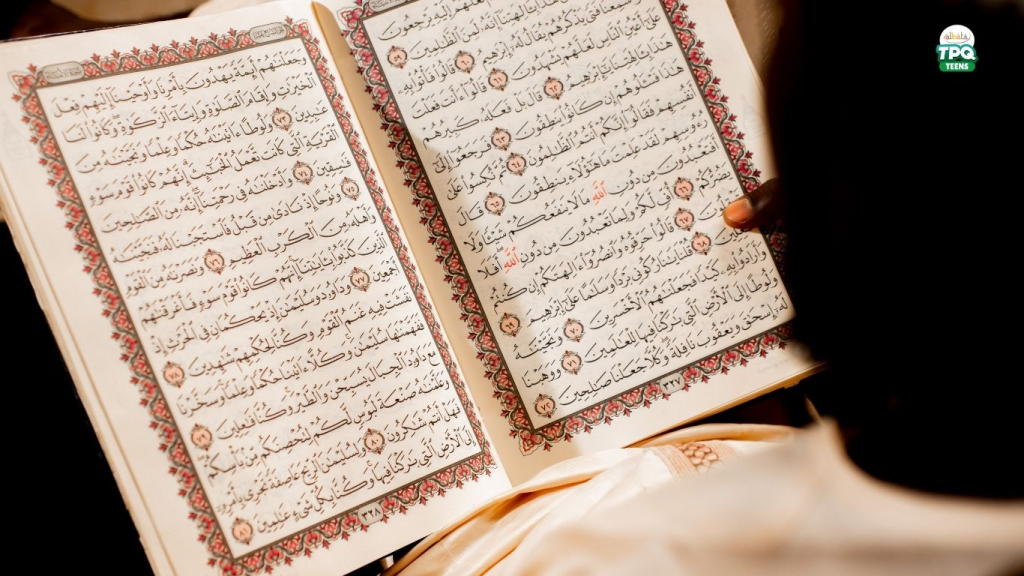 لَعَلَّهُمْ إِلَيْهِ يَرْجِعُونَ ٥٨
لَمِنَ ٱلظَّـٰلِمِينَ ٥٩ قَالُوا۟
سَمِعْنَا فَتًى يَذْكُرُهُمْ يُقَالُ لَهُۥٓ إِبْرَٰهِيمُ ٦٠ قَالُوا۟ فَأْتُوا۟ بِهِۦ
عَلَىٰٓ أَعْيُنِ ٱلنَّاسِ لَعَلَّهُمْ يَشْهَدُونَ ٦١ قَالُوٓا۟ ءَأَنتَ فَعَلْتَ
هَـٰذَا بِـَٔالِهَتِنَا يَـٰٓإِبْرَٰهِيمُ ٦٢ قَالَ بَلْ فَعَلَهُۥ كَبِيرُهُمْ
هَـٰذَا فَسْـَٔلُوهُمْ إِن كَانُوا۟ يَنطِقُونَ ٦٣ فَرَجَعُوٓا۟ إِلَىٰٓ
أَنفُسِهِمْ فَقَالُوٓا۟ إِنَّكُمْ أَنتُمُ ٱلظَّـٰلِمُونَ ٦٤ ثُمَّ نُكِسُوا۟ عَلَىٰ
رُءُوسِهِمْ لَقَدْ عَلِمْتَ مَا هَـٰٓؤُلَآءِ يَنطِقُونَ ٦٥ قَالَ
أَفَتَعْبُدُونَ مِن دُونِ ٱللَّهِ مَا لَا يَنفَعُكُمْ شَيْـًٔا وَلَا
يَضُرُّكُمْ ٦٦ أُفٍّ لَّكُمْ وَلِمَا تَعْبُدُونَ مِن دُونِ ٱللَّهِ أَفَلَا
٦٧ قَالُوا۟ حَرِّقُوهُ وَٱنصُرُوٓا۟ ءَالِهَتَكُمْ إِن كُنتُمْ
٦٨ قُلْنَا يَـٰنَارُ كُونِى بَرْدًا وَسَلَـٰمًا عَلَىٰٓ إِبْرَٰهِيمَ ٦٩
وَأَرَادُوا۟ بِهِۦ كَيْدًا فَجَعَلْنَـٰهُمُ ٱلْأَخْسَرِينَ ٧٠ وَنَجَّيْنَـٰهُ
وَلُوطًا إِلَى ٱلْأَرْضِ ٱلَّتِى بَـٰرَكْنَا فِيهَا لِلْعَـٰلَمِينَ ٧١ وَوَهَبْنَا
لَهُۥٓ إِسْحَـٰقَ وَيَعْقُوبَ نَافِلَةً وَكُلًّا جَعَلْنَا صَـٰلِحِينَ ٧٢
٣٢٧
وَجَعَلْنَـٰهُمْ أَئِمَّةً يَهْدُونَ بِأَمْرِنَا وَأَوْحَيْنَآ إِلَيْهِمْ فِعْلَ
ٱلْخَيْرَٰتِ وَإِقَامَ ٱلصَّلَوٰةِ وَإِيتَآءَ ٱلزَّكَوٰةِ وَكَانُوا۟ لَنَا
عَـٰبِدِينَ ٧٣ وَلُوطًا ءَاتَيْنَـٰهُ حُكْمًا وَعِلْمًا وَنَجَّيْنَـٰهُ مِنَ
ٱلْقَرْيَةِ ٱلَّتِى كَانَت تَّعْمَلُ ٱلْخَبَـٰٓئِثَ إِنَّهُمْ كَانُوا۟ قَوْمَ سَوْءٍ
فَـٰسِقِينَ ٧٤ وَأَدْخَلْنَـٰهُ فِى رَحْمَتِنَآ إِنَّهُۥ مِنَ ٱلصَّـٰلِحِينَ
٧٥ وَنُوحًا إِذْ نَادَىٰ مِن قَبْلُ فَٱسْتَجَبْنَا لَهُۥ فَنَجَّيْنَـٰهُ
وَأَهْلَهُۥ مِنَ ٱلْكَرْبِ ٱلْعَظِيمِ ٧٦ وَنَصَرْنَـٰهُ مِنَ ٱلْقَوْمِ
ٱلَّذِينَ كَذَّبُوا۟ بِـَٔايَـٰتِنَآ إِنَّهُمْ كَانُوا۟ قَوْمَ سَوْءٍ فَأَغْرَقْنَـٰهُمْ
أَجْمَعِينَ ٧٧ وَدَاوُۥدَ وَسُلَيْمَـٰنَ إِذْ يَحْكُمَانِ فِى ٱلْحَرْثِ إِذْ
نَفَشَتْ فِيهِ غَنَمُ ٱلْقَوْمِ وَكُنَّا لِحُكْمِهِمْ شَـٰهِدِينَ ٧٨
فَفَهَّمْنَـٰهَا سُلَيْمَـٰنَ وَكُلًّا ءَاتَيْنَا حُكْمًا وَعِلْمًا وَسَخَّرْنَا
مَعَ دَاوُۥدَ ٱلْجِبَالَ يُسَبِّحْنَ وَٱلطَّيْرَ وَكُنَّا فَـٰعِلِينَ ٧٩
وَعَلَّمْنَـٰهُ صَنْعَةَ لَبُوسٍ لَّكُمْ لِتُحْصِنَكُم مِّنۢ بَأْسِكُمْ
فَهَلْ أَنتُمْ شَـٰكِرُونَ ٨٠ وَلِسُلَيْمَـٰنَ ٱلرِّيحَ عَاصِفَةً تَجْرِى بِأَمْرِهِۦٓ
إِلَى ٱلْأَرْضِ ٱلَّتِى بَـٰرَكْنَا فِيهَا وَكُنَّا بِكُلِّ شَىْءٍ عَـٰلِمِينَ ٨١
٣٢٨
albaby
TPQ
TEENS